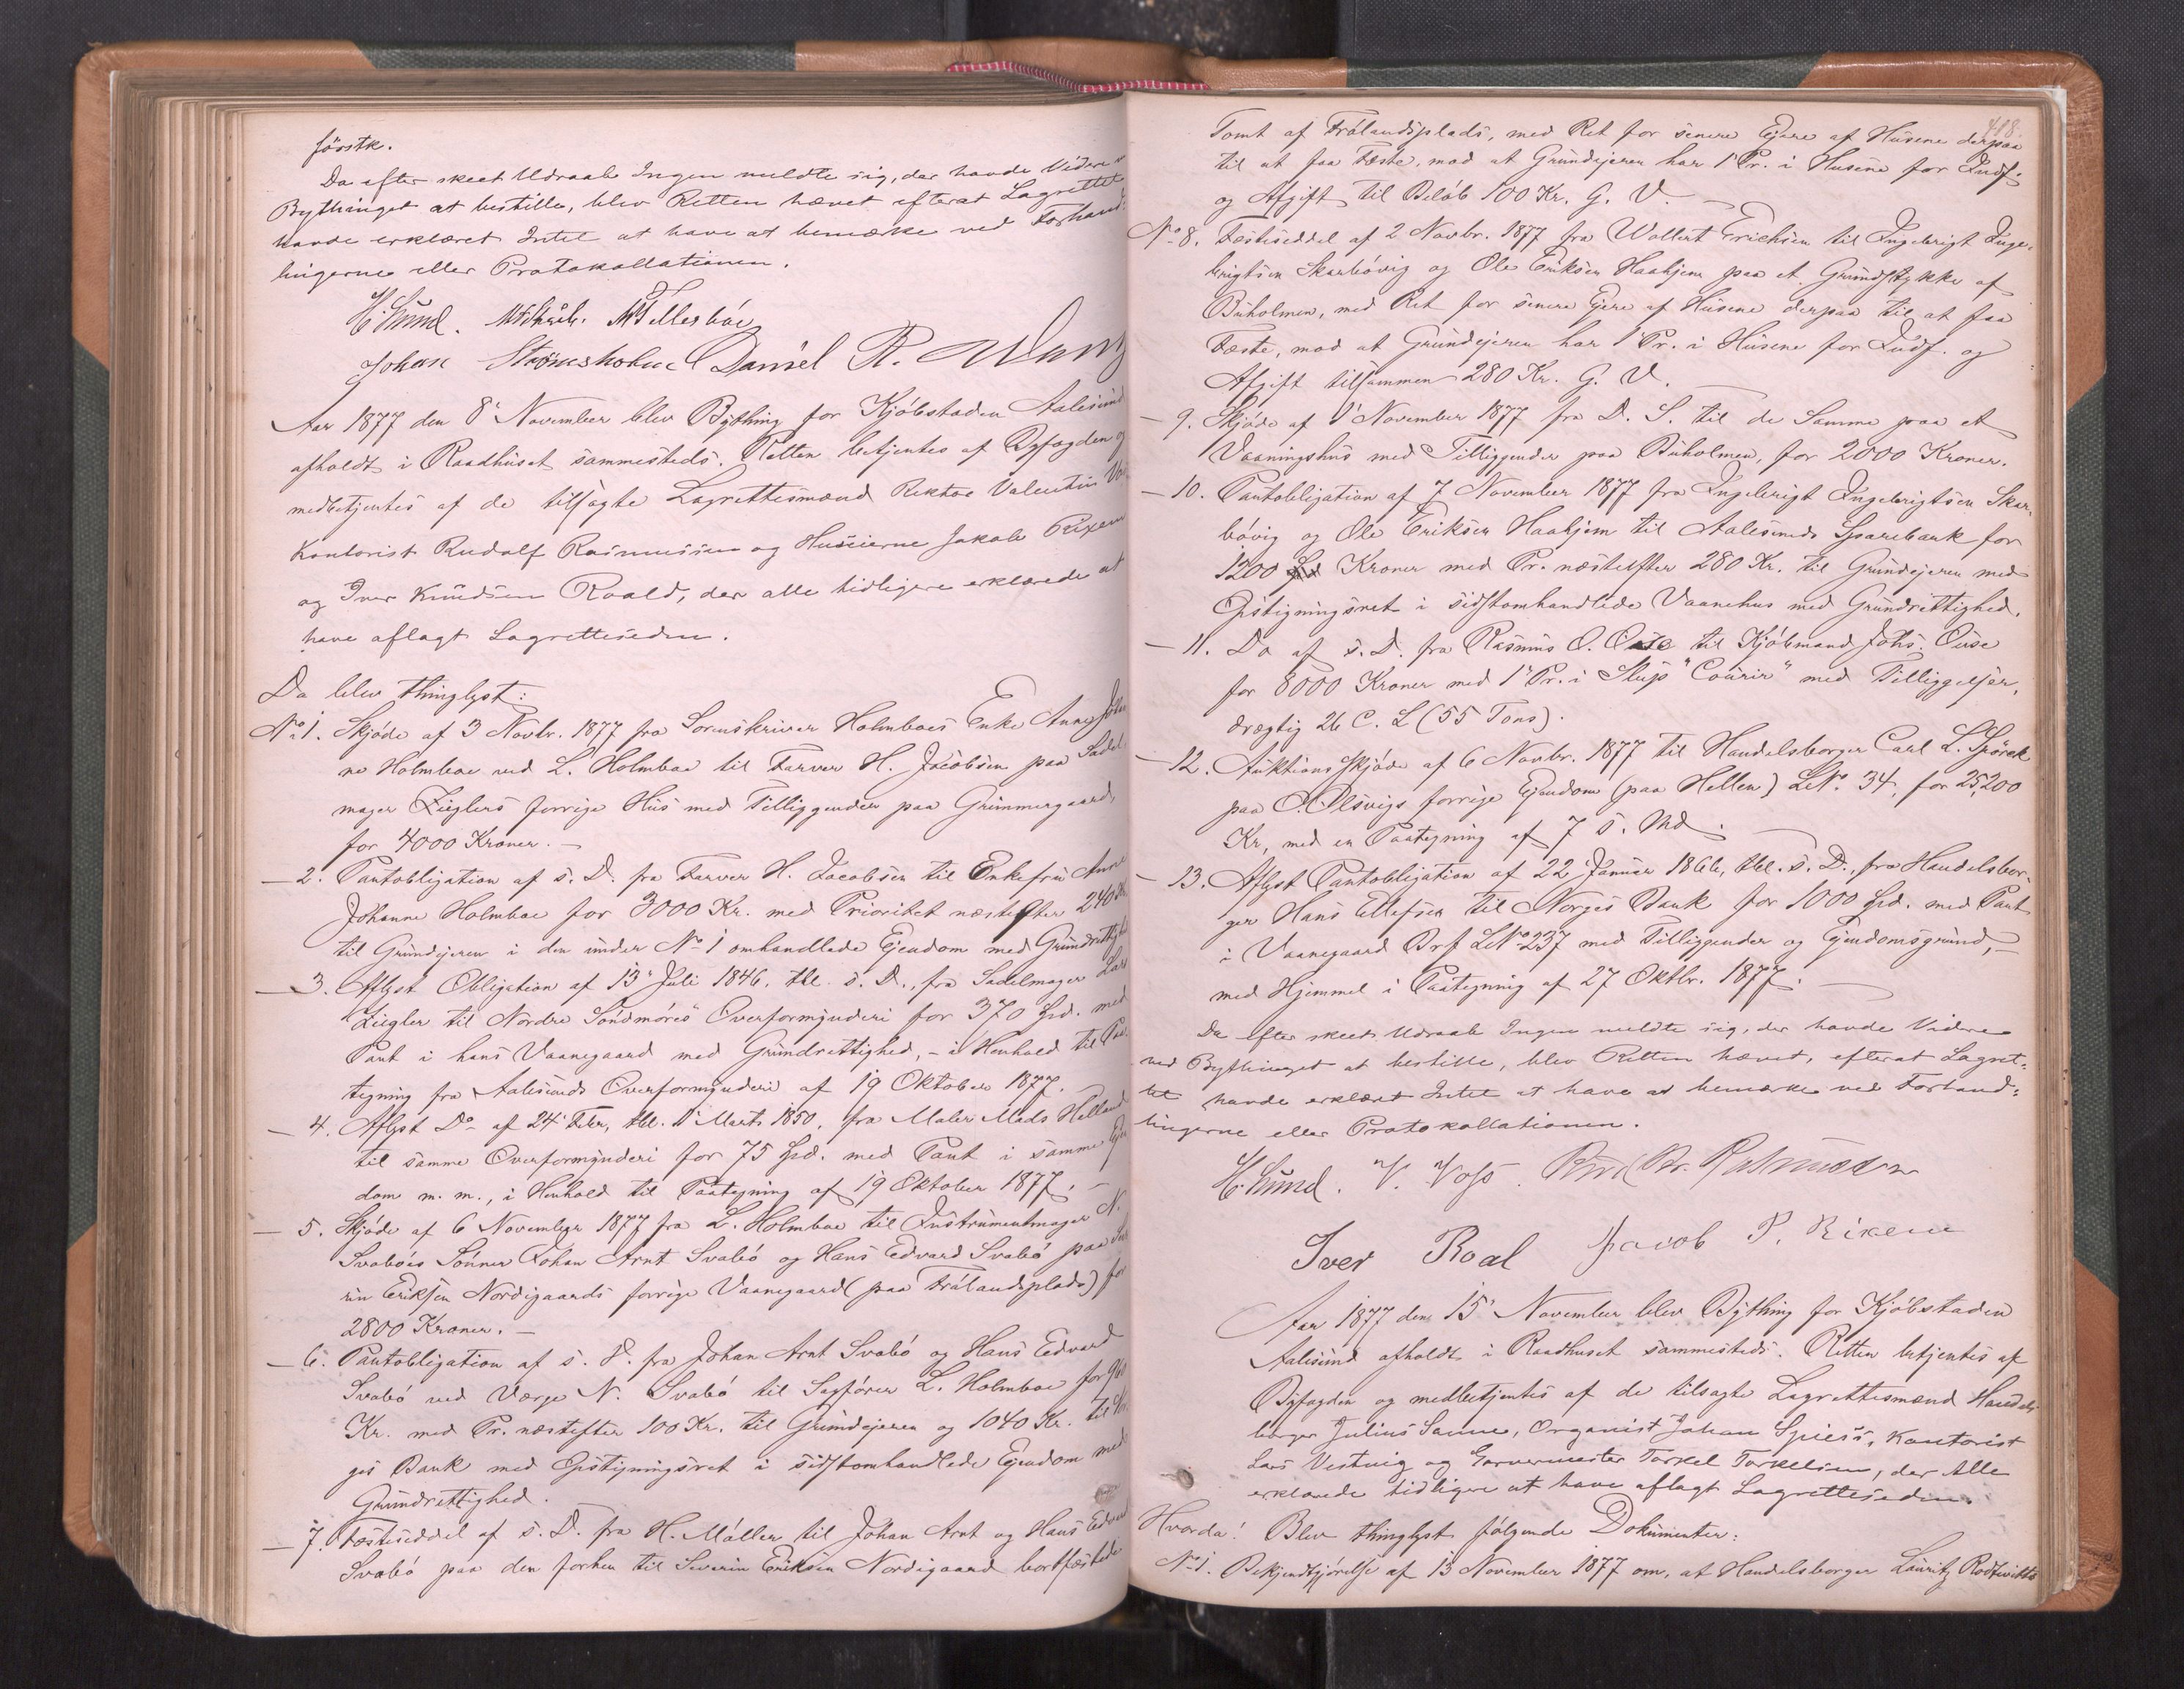 förstk.
Da efter skeet Udraab Ingen meldte sig, der havde Videre v
Bythinget at bestille, blev Retten hævet efterat Lagrettet
havde erklæret Intet at have at bemærke ved Forhand-
lingerne eller Protokollationen.
H. Lund.
Johan Strømsholm Daniel R.
Aar 1877 den 8' November blev Bything for Kjøbstaden Aalesund
afholdt i Raadhuset sammesteds. Retten betjentes af Byfogden og
medbetjentes af de tilsagte Lagrettesmænd Rektor Valentin Vo
Kontorist Rudolf Rasmussen og Huseierne Jakob Rixen
og Iver Knudsen Roald, der alle tidligere erklærede at
have aflagt Lagretteseden.
Da blev thinglyst:
No 1. Skjøde af 3 Novbr. 1877 fra Sorenskriver Holmboes Enke Anne Johan
ne Holmboe ved L. Holmboe til Farver H. Jacobsen paa Sadel
mager Zieglers forrige Hus med Tilliggender paa Grimmergaard,
for 4000 Kroner. —
— 2. Pantobligation af s. D. fra Farver H. Jacobsen til Enkefru Anne
Johanne Holmboe for 3000 Kr. med Prioritet næstefter 240 Kr
til Grundejeren i den under No 1 omhandlede Ejendom med Grundrettighed
— 3. Aflyst Obligation af 13' Juli 1846, thl. s. D., fra Sadelmager Lars
Ziegler til Nordre Söndmöres Overformynderi for 370 Spd. med
Pant i hans Vaanegaard med Grundrettighed, – i Henhold til Paa-
tegning fra Aalesunds Overformynderi af 19 Oktober 1877.
— 4. Aflyst Do af 24' Febr, thl. 1' Marts 1850, fra Maler Mads Helland
til samme Overformynderi for 75 Spd. med Pant i samme Ejen
dom m. m., i Henhold til Paategning af 19 Oktober 1877. –
— 5. Skjøde af 6 November 1877 fra L. Holmboe til Instrumentmager N.
Svabøes Sönner Johan Arnt Svabö og Hans Edvard Svabö paa Seve
rin Eriksen Nordigaards forrige Vaanegaard (paa Frälandsplads) for
2800 Kroner. –
— 6. Pantobligation af s. D. fra Johan Arnt Svabö og Hans Edvard
Svabö ved Værge N. Svabö til Sagförer L. Holmboe for 960
Kr. med Pr. næstefter 100 Kr. til Grundejeren og 1040 Kr. til Nor
ges Bank med Opstigningsret i sidstomhandlede Ejendom med
Grundrettighed.
— 7. Fæsteseddel af s. D. fra H. Møller til Johan Arnt og Hans Edvard
Svabö paa den forhen til Severin Eriksen Nordigaard bortfæstede
418.
Tomt af Frölandsplads, med Ret for senere Ejere af Husene derpaa
til at faa Fæste, mod at Grundejeren har 1' Pr. i Husene for Indf.
og Afgift til Beløb 100 Kr. G. V. —
No 8. Fæsteseddel af 2 Novbr. 1877 fra Wollert Erichsen til Ingebrigt Inge-
brigtsen Skarbövig og Ole Eriksen Haahjem paa et Grundstykke af
Buholmen, med Ret for senere Ejere af Husene derpaa til at faa
Fæste, mod at Grundejeren har 1' Pr. i Husene for Indf. og
Afgift tilsammen 280 Kr. G. V. —
— 9. Skjøde af 1' November 1877 fra D. S. til de Samme paa et
Vaaningshus med Tilliggender paa Buholmen, for 2000 Kroner.
— 10. Pantobligation af 7 November 1877 fra Ingebrigt Ingebrigtsen Skar-
bövig og Ole Eriksen Haahjem til Aalesunds Sparebank for
1200 Kroner med Pr. næstefter 280 Kr. til Grundejeren med
Opstigningsret i sidstomhandlede Vaanehus med Grundrettighed.
— 11. Do af s. D. fra Rasmus O. Ouse til Kjöbmand Johs. Ouse
for 8000 Kroner med 1' Pr. i Slup "Courir" med Tilliggelser,
drægtig 26 C. L (55 Tons).
— 12. Auktionsskjøde af 6 Novbr. 1877 til Handelsborger Carl L. Spörck
paa O. Olsvigs forrige Ejendom (paa Hellen) L.No 34, for 25,200
Kr, med en Paategning af 7 s. Md. —
— 13. Aflyst Pantobligation af 22 Januar 1866, thl. s. D., fra Handelsbor-
ger Hans Ellefsen til Norges Bank for 1000 Spd. med Pant
i Vaanegaard Brf LNo 237 med Tilliggender og Ejendomsgrund, –
med Hjemmel i Paategning af 27 Oktbr. 1877. —
Da efter skeet Udraab Ingen meldte sig, der havde Videre
ved Bythinget at bestille, blev Retten hævet, efterat Lagret-
tet havde erklæret Intet at have at bemærke ved Forhand-
lingerne eller Protokollationen.
H. Lund. V. Voss. Rud. Br. Rasmussen
Iver Roal Jacob P. Rixen
Aar 1877 den 15' November blev Bything for Kjöbstaden
Aalesund afholdt i Raadhuset sammesteds. Retten betjentes af
Byfogden og medbetjentes af de tilsagte Lagrettesmænd Handels-
borger Julius Sanne, Organist Johan Spiess, Kontorist
Lars Vestvig og Garvermester Torkel Torkelsen, der Alle
erklærede tidligere at have aflagt Lagretteseden.
Hvorda! Blev thinglyst følgende Dokumenter:
No 1. Bekjendtgjörelse af 13 November 1877 om, at Handelsborger Lauritz Rödtwitts